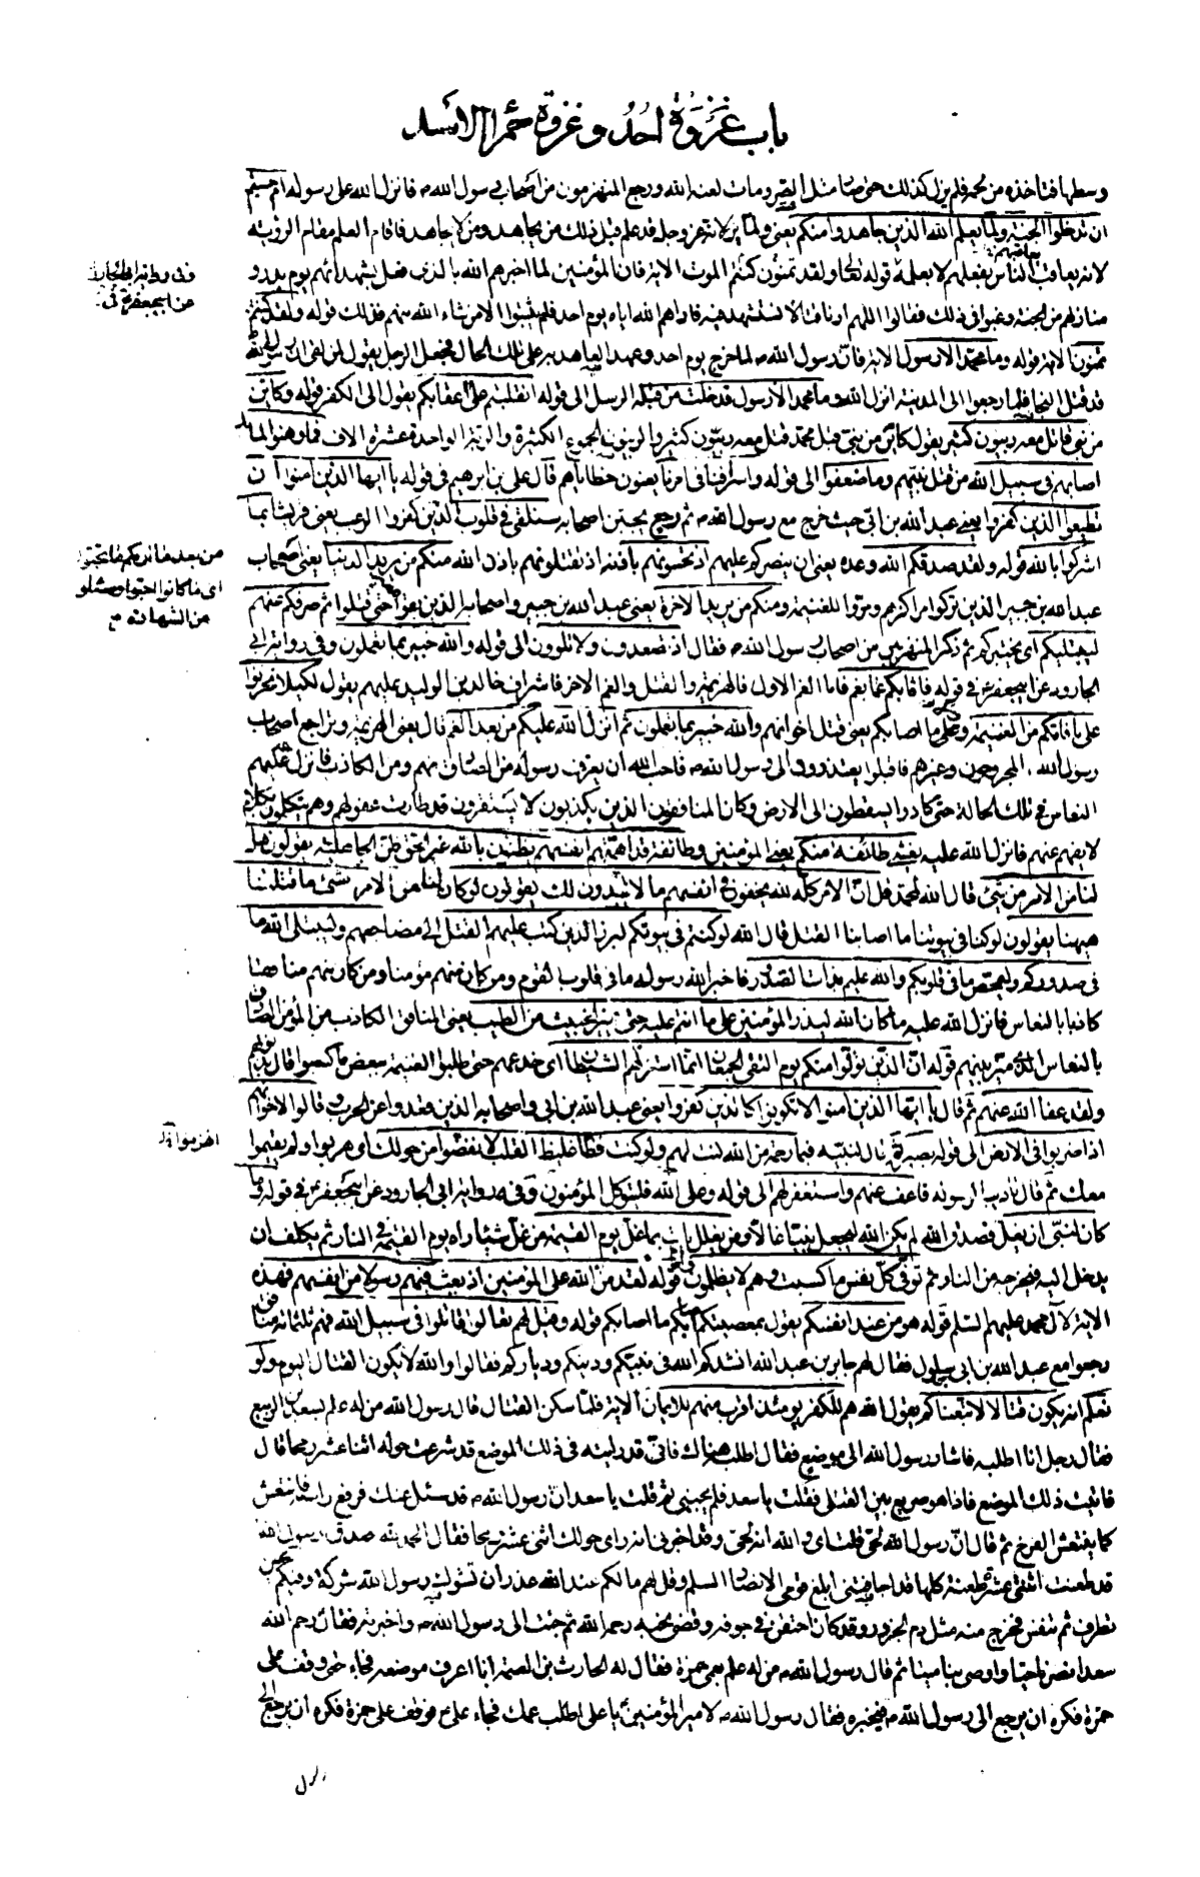 باب غَزْوَةِ اُحُدٍ و غزوة حمراء الاسد
وسطها فتاخذه من محمد فلم يزل كذلك حتى صار مثل الصر ومات لعنه الله ورجع المنهزمون من اصحاب رسول الله ص فانزل الله على رسوله ام حسبتم
ان تدخلوا الجنة ولما يعلم الله الذين جاهدوا منكم يعنى ولما ير لانه عز وجل قد علم قبل ذلك من يجاهد ومن لا يجاهد فاقام العلم مقام الرؤية
لانه يعاقب الناس بفعلهم لا بعلمه قوله تعالى ولقد تمنون كنتم الموت الاية فان المؤمنين لما اخبرهم الله بالذى فعل بشهدائهم يوم بدر و
وفى رواية ابى الجارود
عن ابى جعفر ع فى
منازلهم من الجنة رغبوا فى ذلك فقالوا اللهم ارنا قتالا نستشهد فيه فاراهم الله اياه يوم احد فلم يثبتوا الا من شاء الله منهم فذلك قوله ولقد كنتم
تمنون الاية قوله وما محمد الا رسول الاية فان رسول الله ص لما خرج يوم احد وعهد العاهد به على تلك الحال فجعل الرجل يقول لمن لقى ان رسول الله
قد قتل النجا فلما رجعوا الى المدينة انزل الله وما محمد الا رسول قد خلت من قبله الرسل الى قوله انقلبتم على اعقابكم يقول الى الكفر قوله وكاين
من نبى قاتل معه ربيون كثير يقول كاين من نبى قبل محمد قتل معه ربيون كثير والربيون الجموع الكثيرة والربة الواحدة عشرة الاف فما وهنوا لما
اصابهم فى سبيل الله من قتل نبيهم وما ضعفوا الى قوله واسرافنا فى امرنا يعنون خطاياهم قال على بن ابرهيم فى قوله يا ايها الذين امنوا ان
تطيعوا الذين كفروا يعنى عبد الله بن ابى حيث خرج مع رسول الله ص ثم رجع يجبن اصحابه سنلقى فى قلوب الذين كفروا الرعب يعنى قريشا بما
اشركوا بالله قوله ولقد صدقكم الله وعده يعنى ان ينصركم عليهم اذ تحسونهم باذنه اذ تقتلونهم باذن الله منكم من يريد الدنيا يعنى اصحاب
من بعد ما اريكم ما تحبون
اى ما كانوا احبوا وسئلو
من الشهادة م
عبد الله بن جبير الذين تركوا مراكزهم ومروا للغنيمة ومنكم من يريد الاخرة يعنى عبد الله بن جبير واصحابه الذين بقوا حتى قتلوا ثم صرفكم عنهم
ليبتليكم اى يختبركم ثم ذكر المنهزمين من اصحاب رسول الله ص فقال اذ تصعدون ولا تلوون الى قوله والله خبير بما تعملون وفى رواية ابى
الجارود عن ابى جعفر ع فى قوله فاثابكم غما بغم فاما الغم الاول فالهزيمة والقتل والغم الاخر فاشراف خالد بن الوليد عليهم يقول لكيلا تحزنوا
على ما فاتكم من الغنيمة وعلى ما اصابكم يعنى قتل اخوانهم والله خبير بما تعملون ثم انزل الله عليكم من بعد الغم قال يعنى الهزيمة وتراجع اصحاب
رسول الله المجروحون وغيرهم فاقبلوا يعتذرون الى رسول الله ص فاحب الله ان يعرف رسوله من الصادق منهم ومن الكاذب فانزل عليهم
النعاس فى تلك الحالة حتى كادوا يسقطون الى الارض وكان المنافقون الذين يكذبون لا يستقرون قد طارت عقولهم وهم يتكلمون بكلام
لا يفهم عنهم فانزل الله عليه يغشى طائفة منكم يعنى المؤمنين وطائفة قد اهمتهم انفسهم يظنون بالله غير الحق ظن الجاهلية يقولون هل
لنا من الامر من شئ قال الله لمحمد قل ان الامر كله لله يخفون فى انفسهم ما لا يبدون لك يقولون لو كان لنا من الامر شئ ما قتلنا
ههنا يقولون لو كنا فى بيوتنا ما اصابنا القتل قال الله لو كنتم فى بيوتكم لبرز الذين كتب عليهم القتل الى مضاجعهم وليبتلى الله ما
فى صدوركم وليمحص ما فى قلوبكم والله عليم بذات الصدور فاخبر الله رسوله ما فى قلوب القوم ومن كان منهم مؤمنا ومن كان منهم منافقا
كاذبا بالنعاس فانزل الله عليه ما كان الله ليذر المؤمنين على ما انتم عليه حتى يميز الخبيث من الطيب يعنى المنافق الكاذب من المؤمن الصادق
بالنعاس الذى ميز بينهم قوله ان الذين تولوا منكم يوم التقى الجمعان انما استزلهم الشيطان اى خدعهم حتى طلبوا الغنيمة ببعض ما كسبوا قال بذنوبهم
ولقد عفا الله عنهم ثم قال يا ايها الذين امنوا لا تكونوا كالذين كفروا يعنى عبد الله بن ابى واصحابه الذين قعدوا عن الحرب وقالوا لاخوانهم
اذا ضربوا فى الارض الى قوله بصير ثم قال لنبيه فبما رحمة من الله لنت لهم ولو كنت فظا غليظ القلب لانفضوا من حولك اى هربوا ولم يقيموا
انهزموا
معك ثم قال تاديبا لرسوله فاعف عنهم واستغفر لهم الى قوله وعلى الله فليتوكل المؤمنون وفى رواية ابى الجارود عن ابى جعفر ع فى قوله وما
كان لنبى ان يغل فصدق الله لم يكن الله ليجعل نبيا غالا ومن يغلل يات بما غل يوم القيمة من غل شيئا راه يوم القيمة فى النار ثم يكلف ان
يدخل اليه فيخرجه من النار ثم توفى كل نفس ما كسبت وهم لا يظلمون قوله لقد من الله على المؤمنين اذ بعث فيهم رسولا من انفسهم فهذه
الاية لآل محمد عليهم السلم قوله هو من عند انفسكم يقول بمعصيتكم اصابكم ما اصابكم قوله وقيل لهم تعالوا قاتلوا فى سبيل الله فهم ثلثمائة منافق
رجعوا مع عبد الله بن ابى سلول فقال لهم جابر بن عبد الله انشدكم الله فى نبيكم ودينكم ودياركم فقالوا والله لا يكون القتال اليوم ولو
نعلم انه يكون قتالا لاتبعناكم يقول الله هم للكفر يومئذ اقرب منهم للايمان الاية فلما سكن القتال قال رسول الله من له علم بسعد بن الربيع
فقال رجل انا اطلبه فاشار رسول الله الى موضع فقال اطلبه هناك فانى قد رايته فى ذلك الموضع قد شرعت حوله اثنا عشر رمحا قال
فاتيت ذلك الموضع فاذا هو صريع بين القتلى فقلت يا سعد فلم يجبنى ثم قلت يا سعد ان رسول الله ص قد سئل عنك فرفع راسه فانتعش
كما ينتعش الفرخ ثم قال ان رسول الله لحى قلت اى والله انه لحى وقد اخبرنى انه راى حولك اثنى عشر رمحا فقال الحمد لله صدق رسول الله
قد طعنت اثنتى عشرة طعنة كلها قد اجافتنى ابلغ قومى الانصار السلم وقل لهم ما لكم عند الله عذر ان تشوك رسول الله شوكة وفيكم عين
تطرف ثم تنفس فخرج منه مثل دم الجزور وقد كان احتقن فى جوفه وقضى نحبه رحمه الله ثم جئت الى رسول الله ص واخبرته فقال رحم الله
سعدا نصرنا حيا واوصى بنا ميتا ثم قال رسول الله ص من له علم بعمى حمزة فقال له الحارث بن الصمة انا اعرف موضعه فجاء حتى وقف على
حمزة فكره ان يرجع الى رسول الله ص فيخبره فقال رسول الله ص لامير المؤمنين يا على اطلب عمك فجاء على ع فوقف على حمزة فكره ان يرجع الى